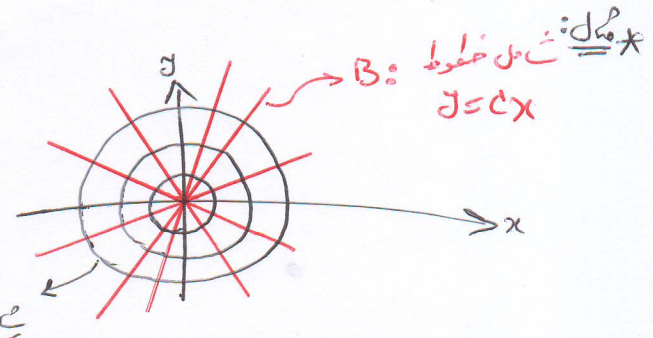 * مثال:
B: شامل خطوط
y = cx
y
x